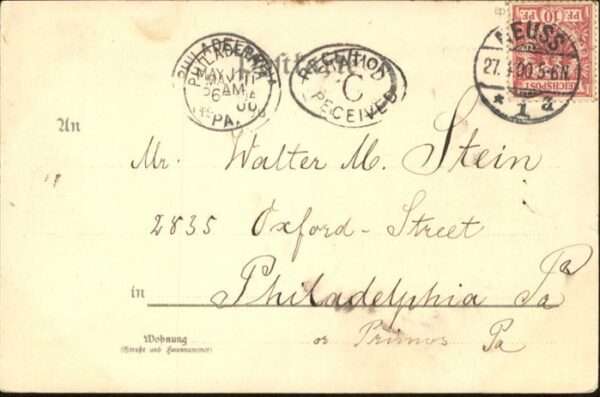 PHILADELPHIA
PA.
STATION
C
RECEIVED
10 PF
REICHSPOST
NEUSS
27. 00 5-6N
* 1 a
An
Mr. Walter M. Stein
2835 Oxford-Street
in Philadelphia Pa
Wohnung
(Straße und Hausnummer)
or Primos Pa